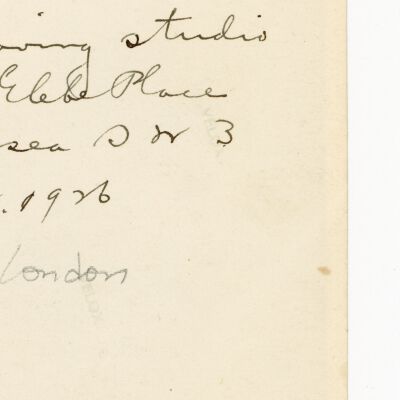 oving studio
Glebe Place
sea S W 3
. 1926
London